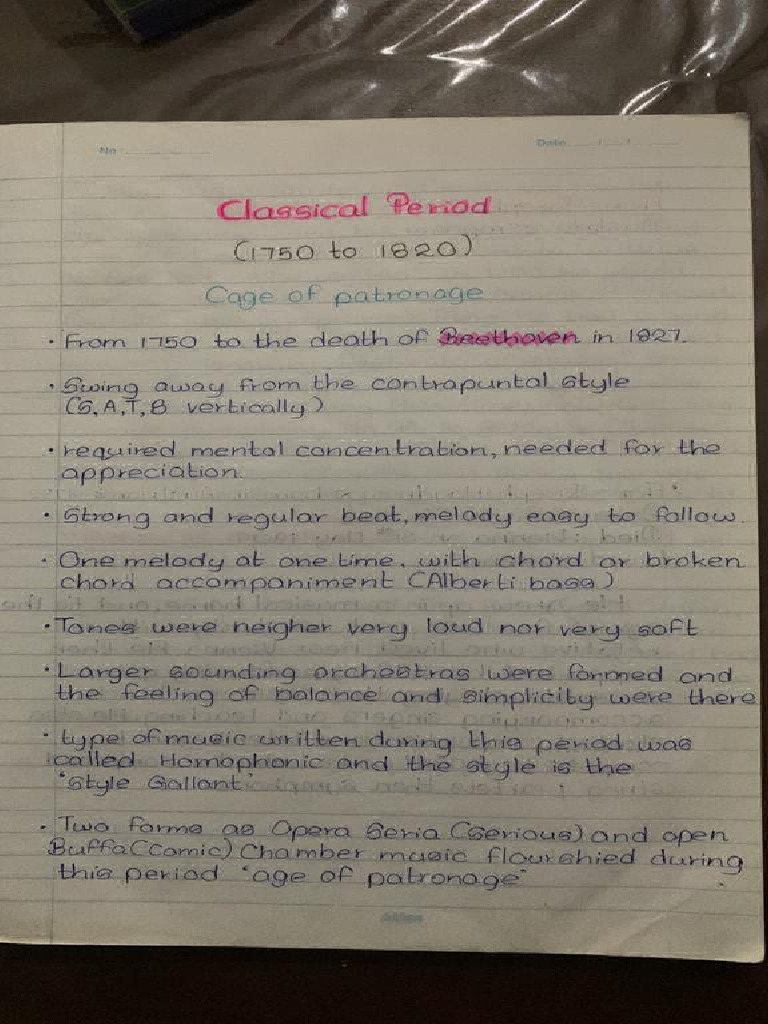 No
Date
Classical Period
(1750 to 1820)
Cage of patronage
• From 1750 to the death of Beethoven in 1827.
• Swing away from the contrapuntal style
(S, A, T, B vertically)
• required mental concentration, needed for the
appreciation.
• Strong and regular beat, melody easy to follow.
• One melody at one time, with chord or broken
chord accompaniment (Alberti bass)
• Tones were neigher very loud nor very soft
• Larger sounding orchestras were formed and
the feeling of balance and simplicity were there
• type of music written during this period was
called Homophonic and the style is the
"Style Gallant"
• Two forms as Opera Seria (Serious) and open
Buffa (Comic) Chamber music flourshied during
this period "age of patronage"
Atlas